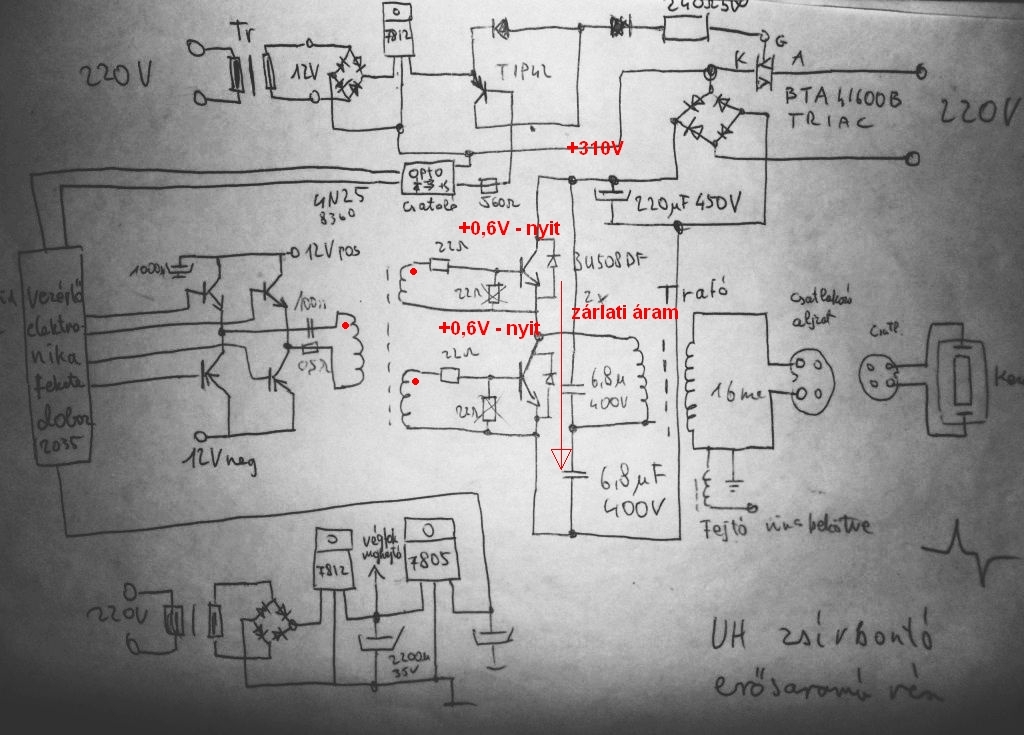 Tr
220V
12V
7812
TIP42
240Ω5W
G
K
A
BTA41600B
TRIAC
220V
+310V
OPTO
4N25
8360
csatoló
560Ω
220µF 450V
+0,6V - nyit
12V pos
1000µ
22Ω
BU508DF
2x
22Ω
100n
Trafó
csatlakozó
aljzat
Csatl.
zárlati áram
vezérlő
elektro-
nika
fekete
doboz
2035
0,5Ω
+0,6V - nyit
22Ω
22Ω
6,8µ
400V
12V neg
6,8µF
400V
Fejtő nina bekötve
7812
végfok
7805
220V
2200µ
35V
UH zsírbontó
erősáramú rész